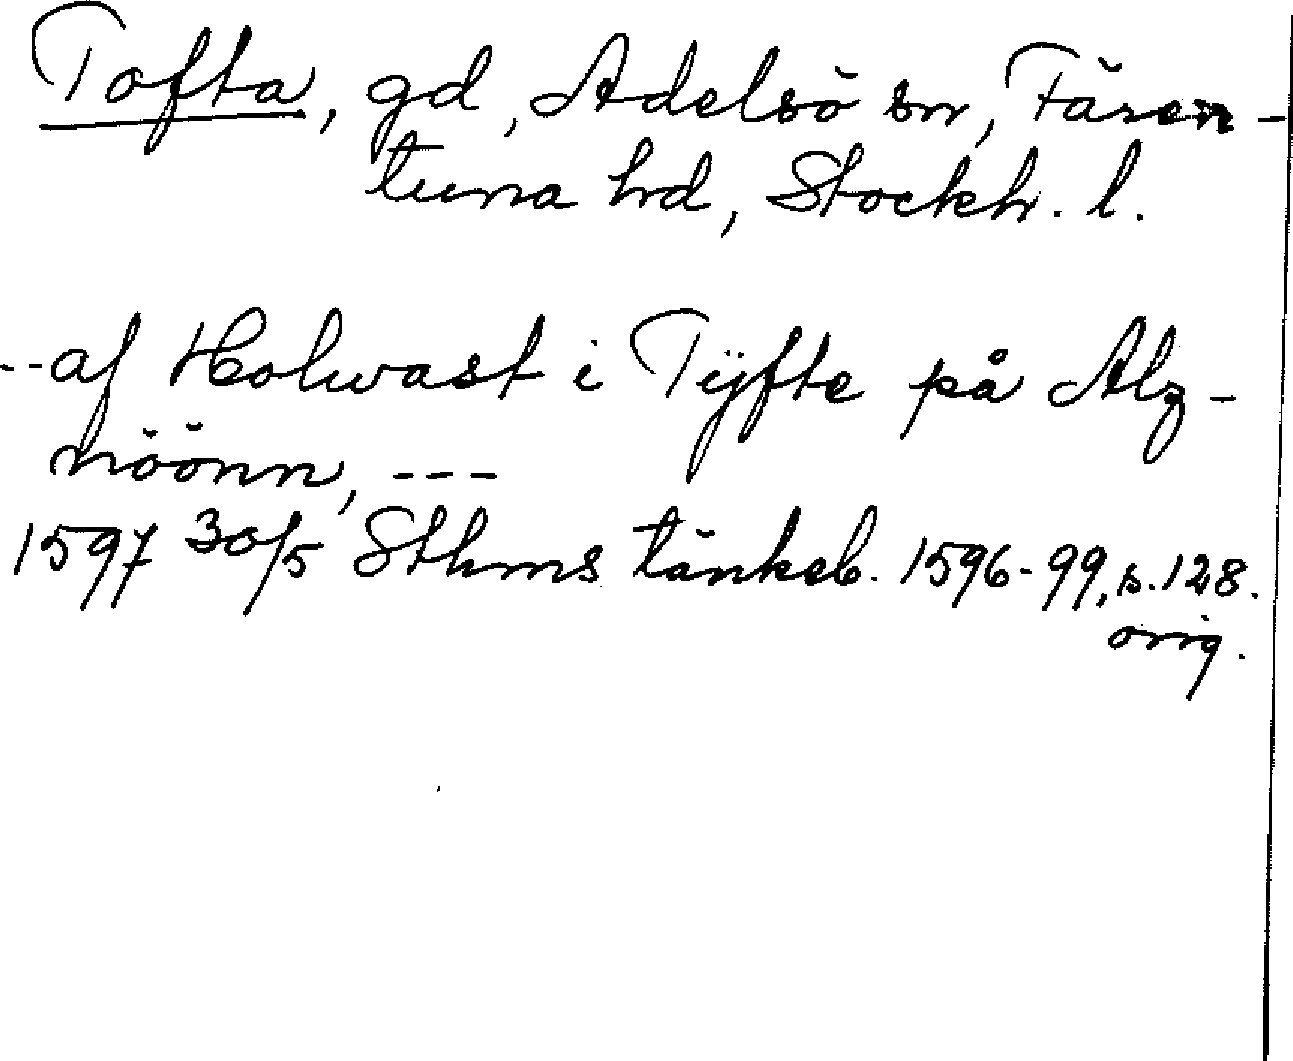 Tofta, gd, Adelsö sn, Fären-
tuna hd, Stockh. l.
--af Holwast i Tÿfte på Alz-
nöönn, ---
1597 30/5 Sthms tänkeb. 1596-99, s. 128.
orig.